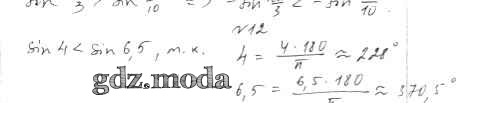 sin 3 / sin 10 => -sin π/3 < -sin π/10.
№12
sin 4 < sin 6,5, т.к. 4 = 4·180/π ≈ 228°
gdz.moda
6,5 = 6,5·180/π ≈ 370,5°